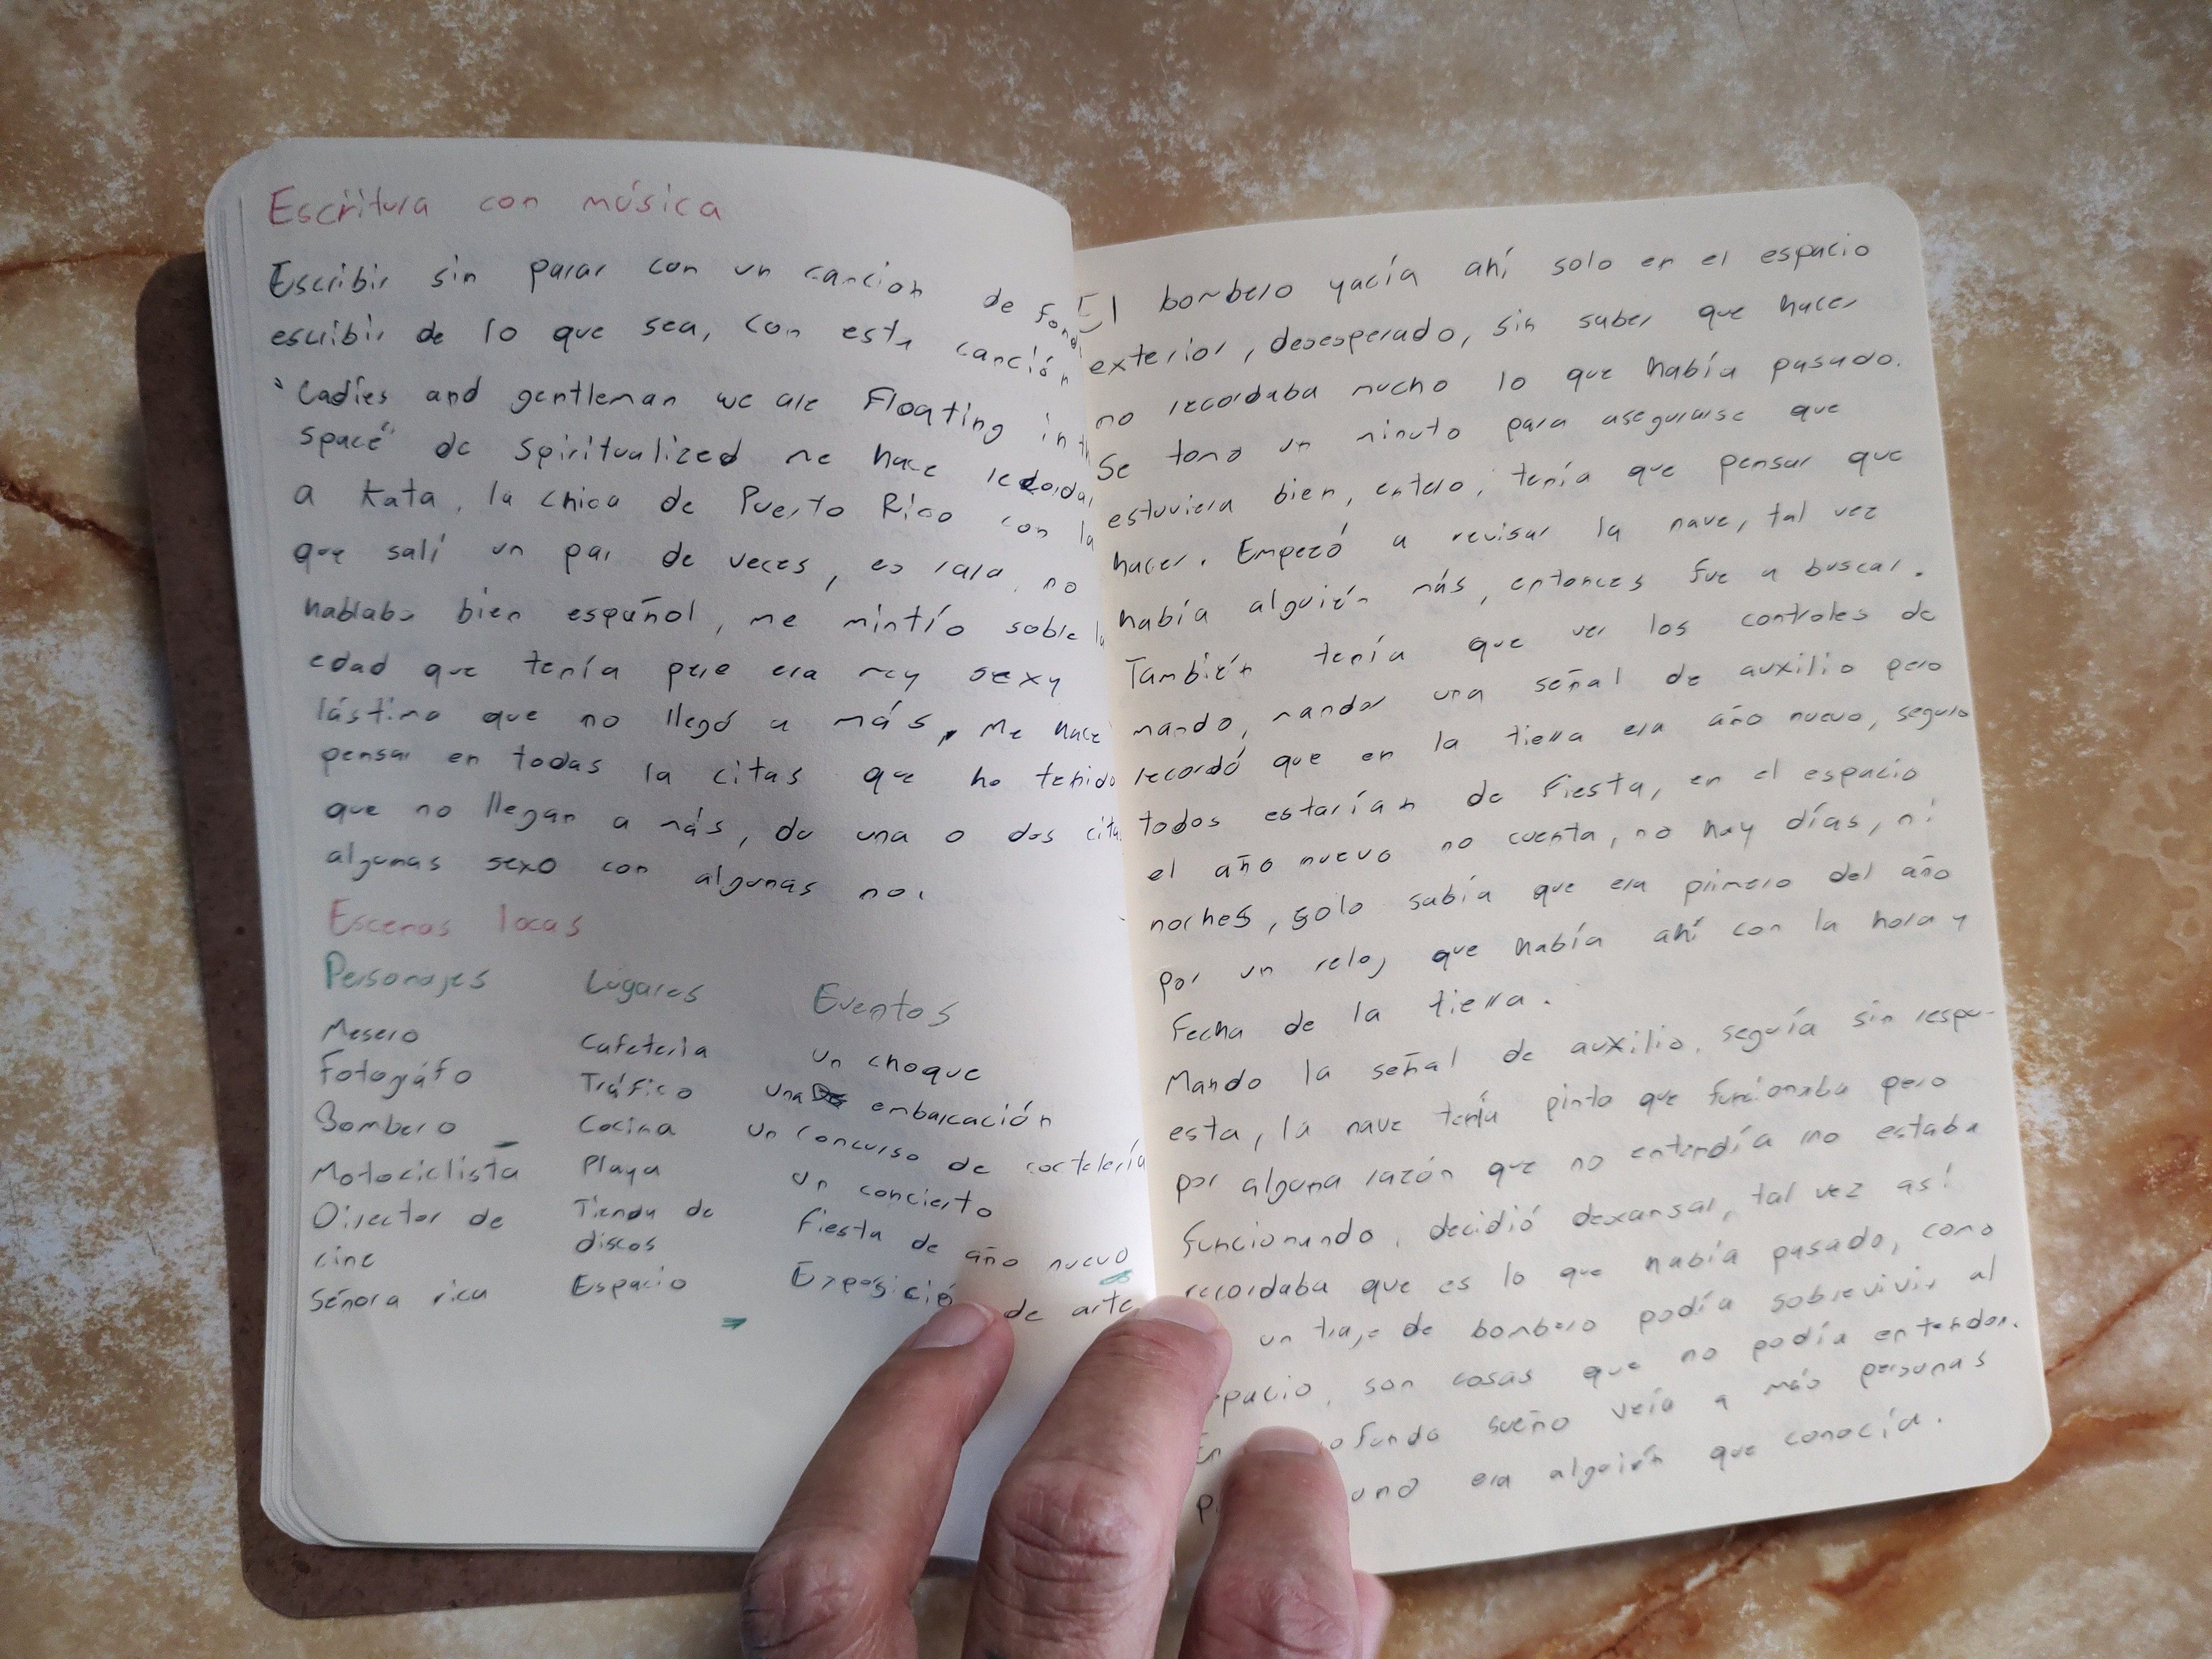 Escritura con música
Escribir sin parar con un cancion de fondo
escribir de lo que sea, con esta canción
"Ladies and gentleman we are Floating in th
space" de Spiritualized me hace recordar
a Kata, la chica de Puerto Rico con la
que salí un par de veces, es rara, no
hablaba bien español, me mintío sobre la
edad que tenía pero era muy sexy
lástima que no llegó a más, Me hace
pensar en todas la citas que he tenido
que no llegan a más, de una o dos citas
algunas sexo con algunas no.
Escenas locas
Personajes Lugares Eventos
Mesero Cafetería Un choque
Fotográfo Tráfico Una embarcación
Bombero Cocina Un concurso de coctelería
Motociclista Playa Un concierto
Director de Tienda de Fiesta de año nuevo
cine discos
Señora rica Espacio Exposición de arte
El bombero yacía ahí solo en el espacio
exterior, desesperado, sin saber que hacer
no recordaba mucho lo que había pasado.
Se tomo un minuto para asegurarse que
estuviera bien, entero, tenía que pensar que
hacer. Empezó a revisar la nave, tal vez
había alguién más, entonces fue a buscar.
También tenía que ver los controles de
mando, mandar una señal de auxilio pero
recordó que en la tierra era año nuevo, seguro
todos estarían de fiesta, en el espacio
el año nuevo no cuenta, no hay días, ni
noches, solo sabía que era primero del año
por un reloj que había ahí con la hora y
fecha de la tierra.
Mando la señal de auxilio, seguía sin respu-
esta, la nave tenía pinta que funcionaba pero
por alguna razón que no entendía no estaba
funcionando, decidió dexansar, tal vez así
recordaba que es lo que había pasado, como
un traje de bombero podía sobrevivir al
espacio, son cosas que no podía entender.
En sueño veía a más personas
era alguién que conocía.